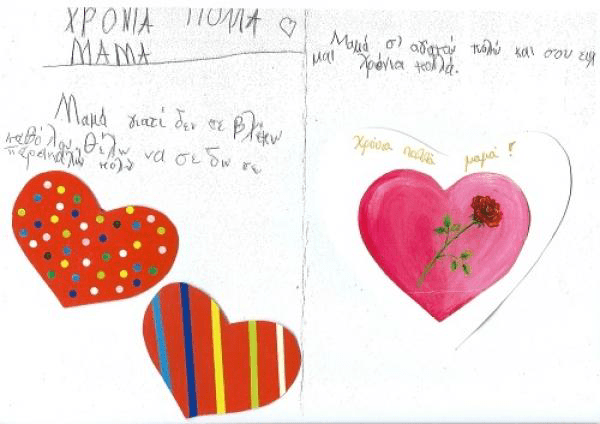 ΧΡΟΝΙΑ ΠΟΛΛΑ
ΜΑΜΑ
Μαμά γιατί δεν σε βλέπω
καθόλου θέλω
να σε δω σε
παρακαλώ πολύ
Μαμά σ' αγαπάω πολύ και σου εύχ
μαι χρόνια πολλά.
Χρόνια πολλά μαμά!